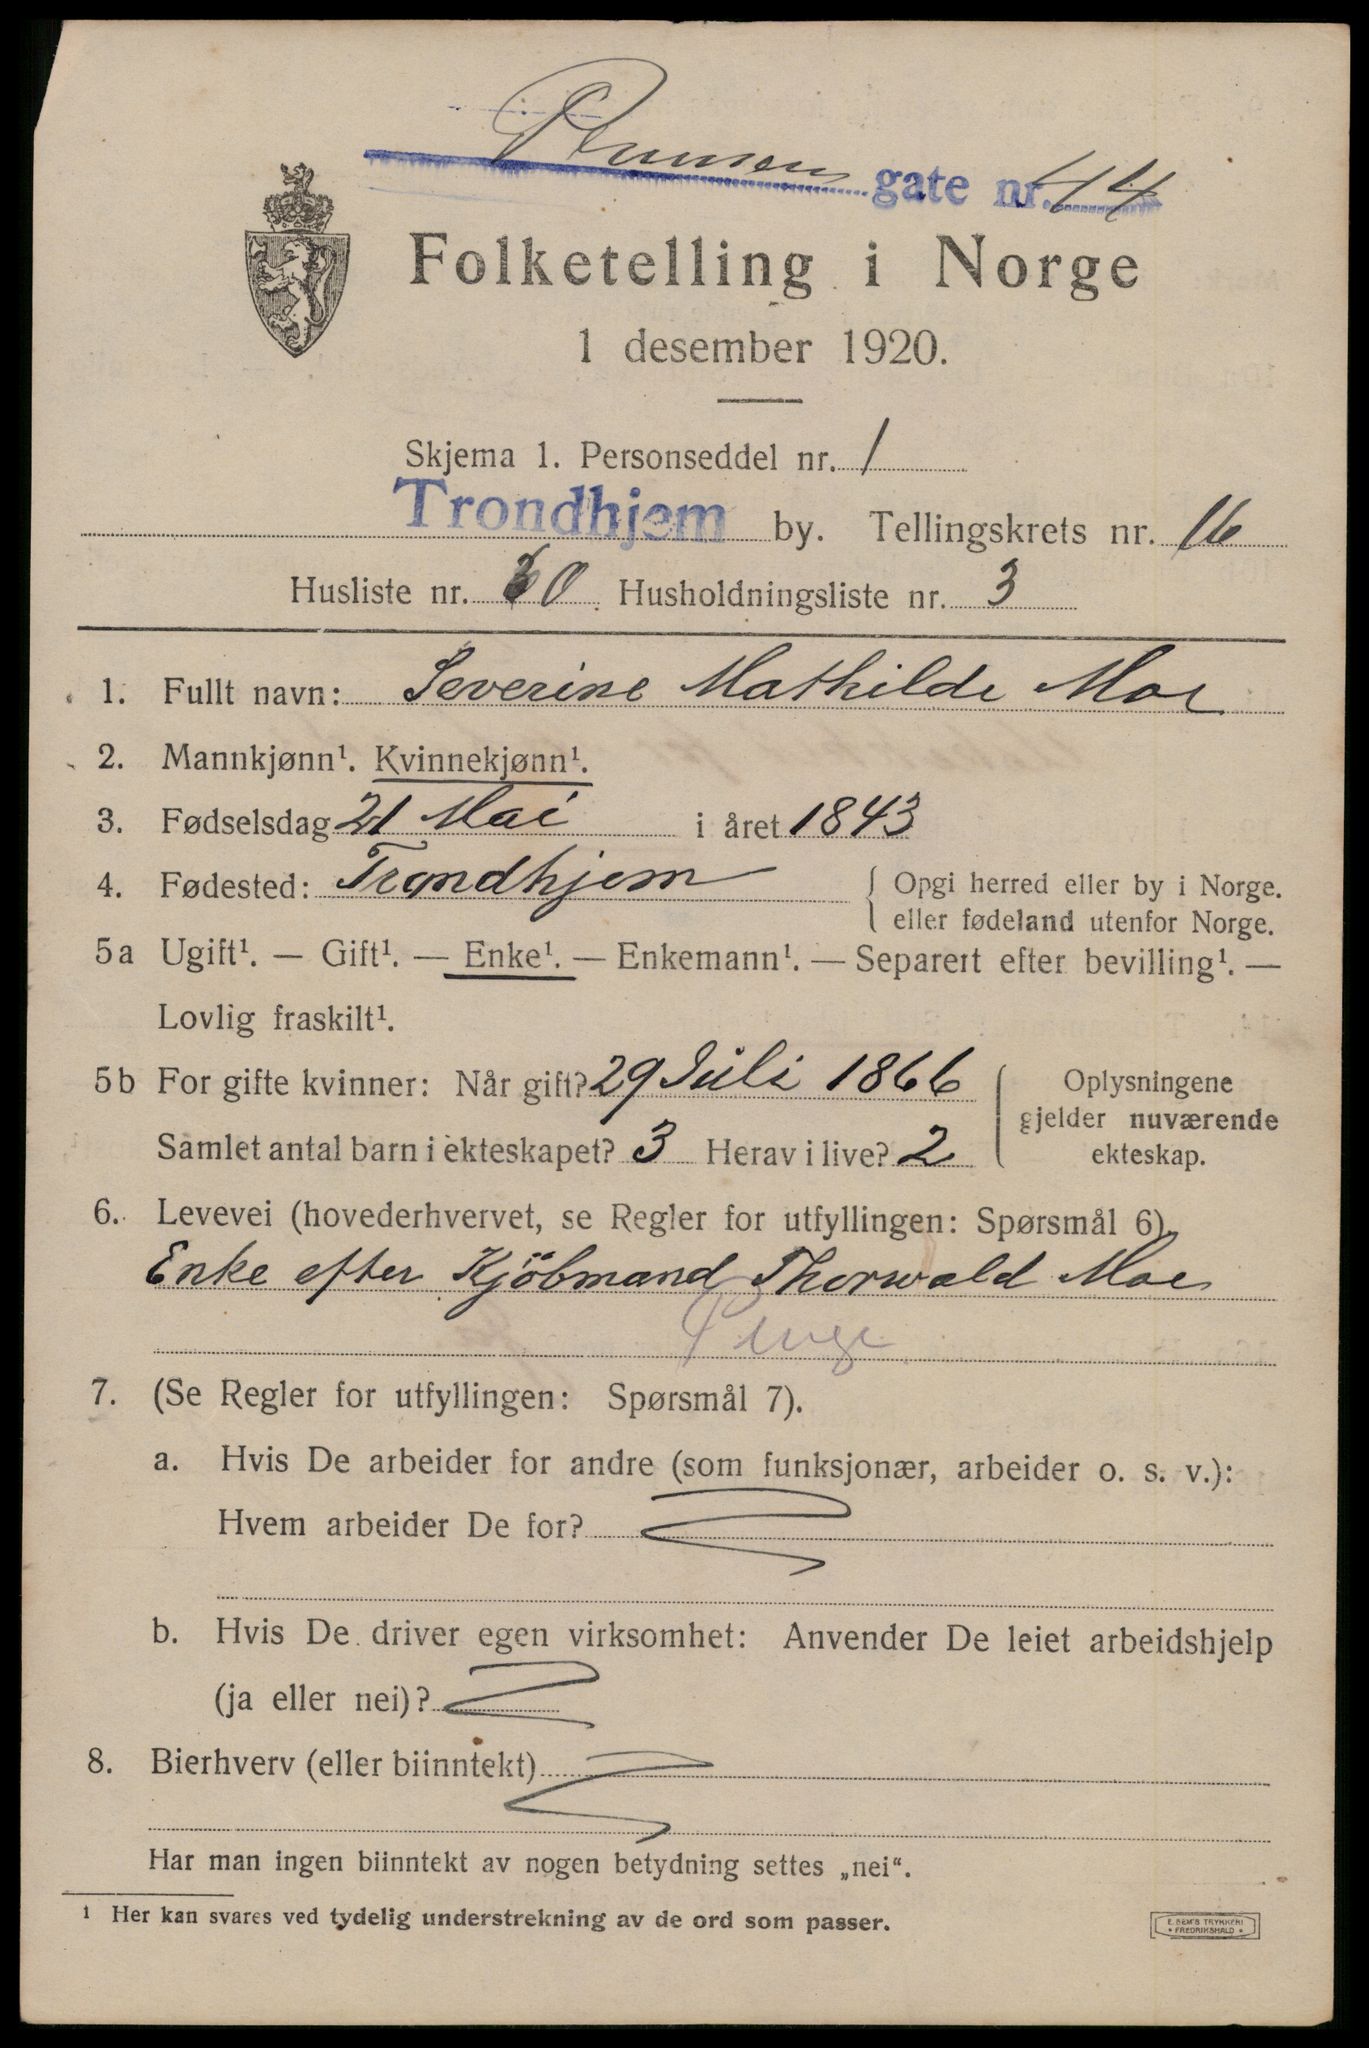 gate nr. 44
Folketelling i Norge
1 desember 1920.
Skjema 1. Personseddel nr. 1
Trondhjem by. Tellingskrets nr. 16
Husliste nr. 30 Husholdningsliste nr. 3
1. Fullt navn: Severine Mathilde Moe
2. Mannkjønn¹. Kvinnekjønn¹.
3. Fødselsdag 21 Mai i året 1843
4. Fødested: Trondhjem { Opgi herred eller by i Norge.
eller fødeland utenfor Norge.
5a Ugift¹. — Gift¹. — Enke¹. — Enkemann¹. — Separert efter bevilling¹. —
Lovlig fraskilt¹.
5b For gifte kvinner: Når gift? 29 Juli 1866 Oplysningene
gjelder nuværende
Samlet antal barn i ekteskapet? 3 Herav i live? 2 ekteskap.
6. Levevei (hovederhvervet, se Regler for utfyllingen: Spørsmål 6).
Enke efter Kjöbmand Thorwald Moe
7. (Se Regler for utfyllingen: Spørsmål 7).
a. Hvis De arbeider for andre (som funksjonær, arbeider o. s. v.):
Hvem arbeider De for?
b. Hvis De driver egen virksomhet: Anvender De leiet arbeidshjelp
(ja eller nei)?
8. Bierhverv (eller biinntekt)
Har man ingen biinntekt av nogen betydning settes „nei“.
¹ Her kan svares ved tydelig understrekning av de ord som passer.
E. SEM'S TRYKKERI
FREDRIKSHALD